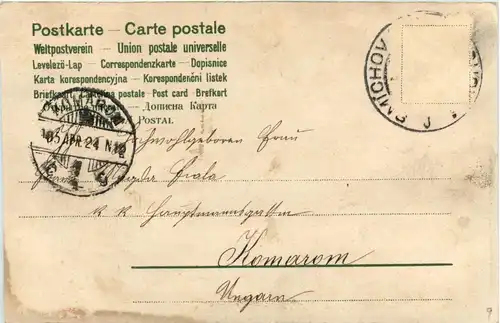 Postkarte — Carte postale
Weltpostverein — Union postale universelle
Levelező-Lap — Correspondenzkarte — Dopisnice
Karta korespondencyjna — Korespondenční listek
Briefkart Cartolina postale Post card — Brefkort
Дописна Карта
POSTAL
SMICHOV
KOMÁROM
905 APR. 24 N. 12
Hochwohlgeboren Frau
Fiala
k. k. Hauptmannsgattin
Komarom
Ungarn
9